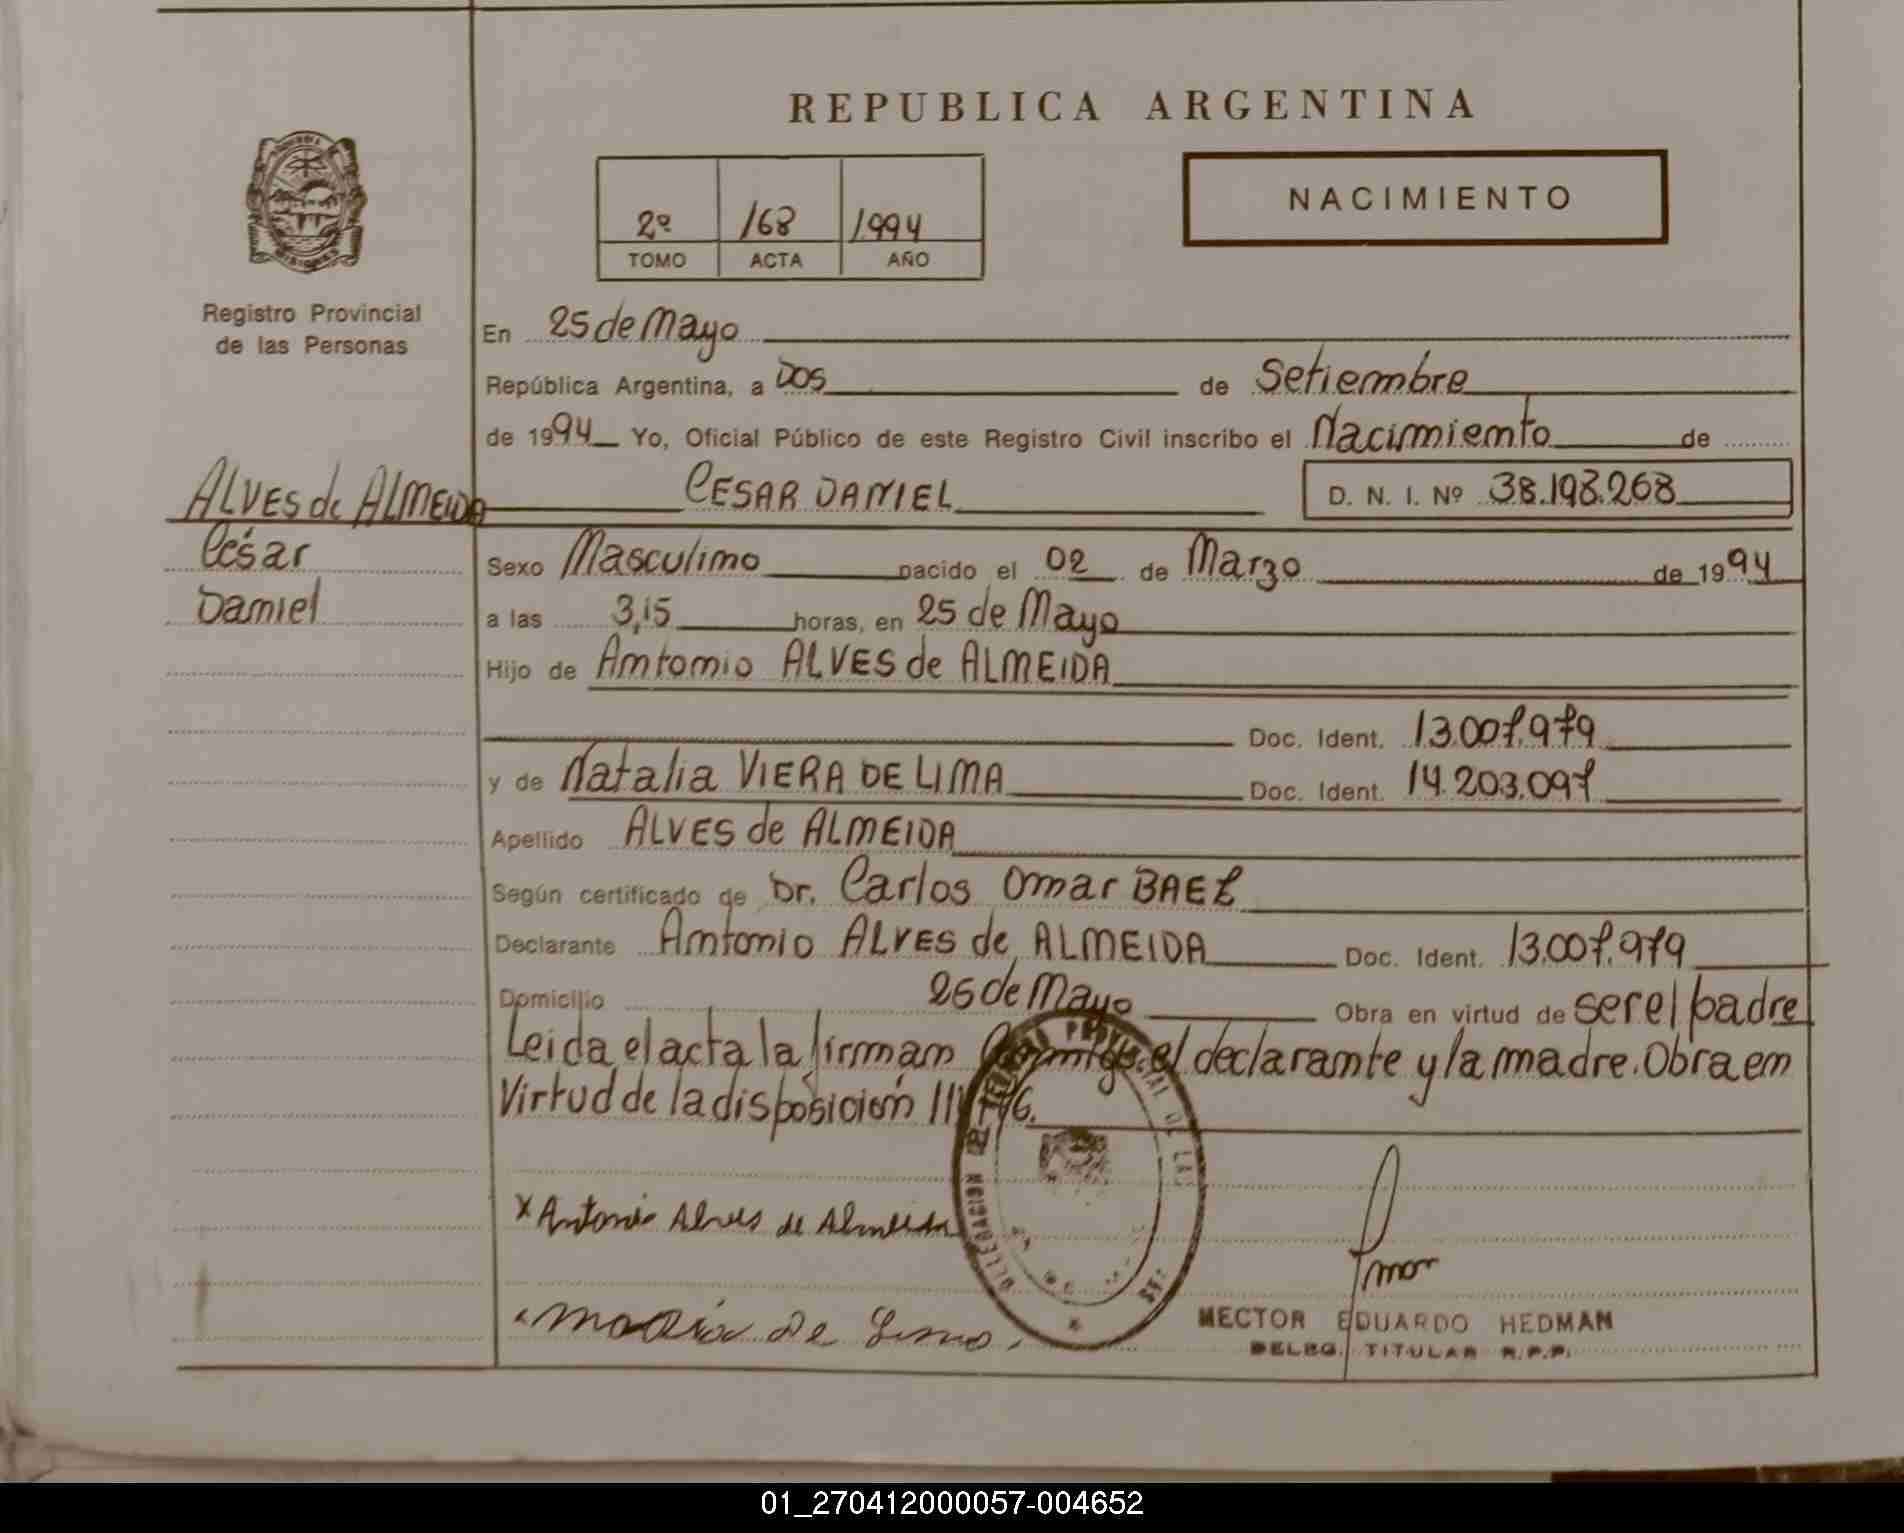 REPUBLICA ARGENTINA
NACIMIENTO
2º 168 1994
TOMO ACTA AÑO
Registro Provincial
de las Personas
En 25 de Mayo
República Argentina, a Dos de Setiembre
de 1994 Yo, Oficial Público de este Registro Civil inscribo el Nacimiento de
ALVES de ALMEIDA CESAR DANIEL D. N. I. Nº 38.198.268
César
Daniel
Sexo Masculino nacido el 02 de Marzo de 1994
a las 3,15 horas, en 25 de Mayo
Hijo de Antonio ALVES de ALMEIDA
Doc. Ident. 13.007.979
y de Natalia VIERA DE LIMA Doc. Ident. 14.203.097
Apellido ALVES de ALMEIDA
Según certificado de Dr. Carlos Omar BAEZ
Declarante Antonio ALVES de ALMEIDA Doc. Ident. 13.007.979
Domicilio 25 de Mayo Obra en virtud de ser el padre
Leida el acta la firman el declarante y la madre. Obra en
Virtud de la disposición
x Antonio Alves de Almeida
DELEGACION PROVINCIAL DE LAS
HECTOR EDUARDO HEDMAN
DELEG. TITULAR R.P.P.
01_270412000057-004652